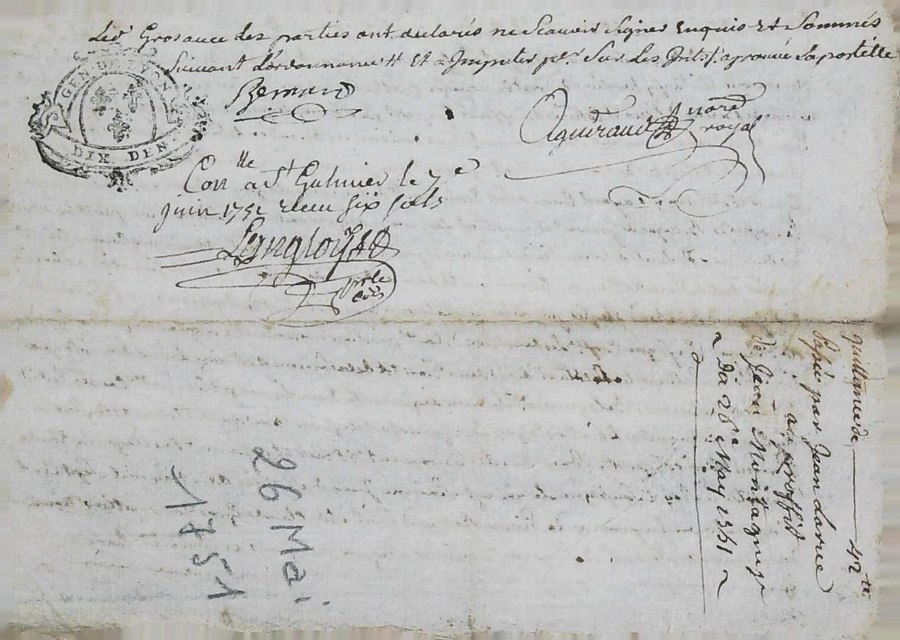 Led Grosance des parties ont declarés ne Scavoir Signer Enquis Et Sommés
Suivant L'ordonnance tt Et a Imputer pr. Sur Les Aprouvé La postille
GEN. DE LYON
DIX. DEN.
Bernard
Aguiraud Nore
royal
Conlle a St Galmier le 7e
Juin 1751 receu six sols
Langlois
quittance de 42 tt
par Jean Larue
au proffit
de Jean Montagny
Du 26e May 1751
26 Mai
1751